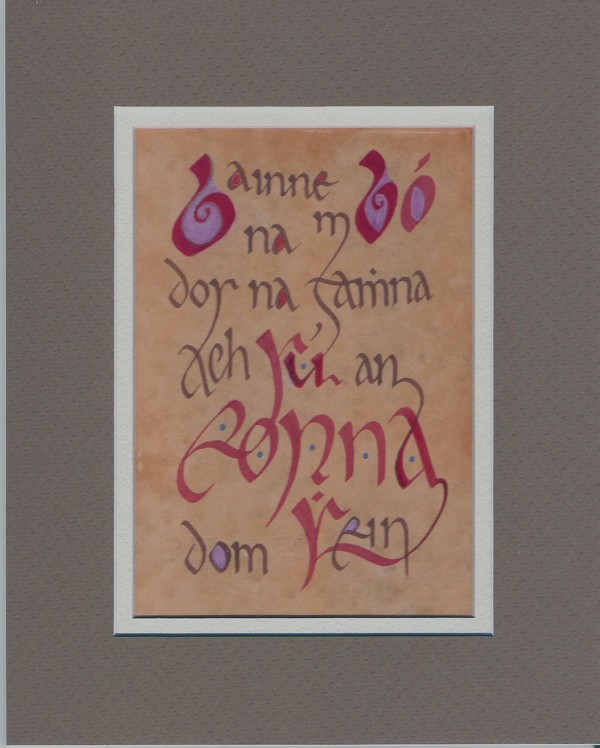 bainne
na mbó
dos na gaṁna
ach sú an
eorna
dom ḟéin